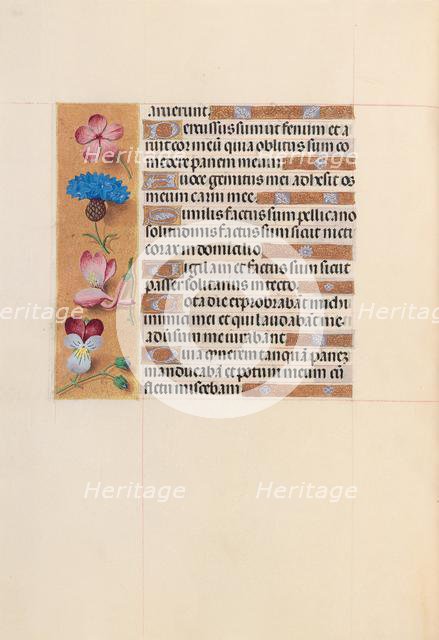 aruerunt.
Percussus sum ut fenum et a
ruit cor meū quia oblitus sum co
medere panem meum.
A voce gemitus mei adhesit os
meum carni mee.
Similis factus sum pellicano
solitudinis factus sum sicut nicti
corax in domicilio.
Vigilavi et factus sum sicut
passer solitarius in tecto.
Tota die exprobrabāt michi
inimici mei et qui laudabāt me
adversum me iurabant.
Quia cinerem tanquā panez
manducabā et potum meum cū
fletu miscebam.
Heritage
Heritage
Heritage
Heritage
Heritage
Heritage
Heritage